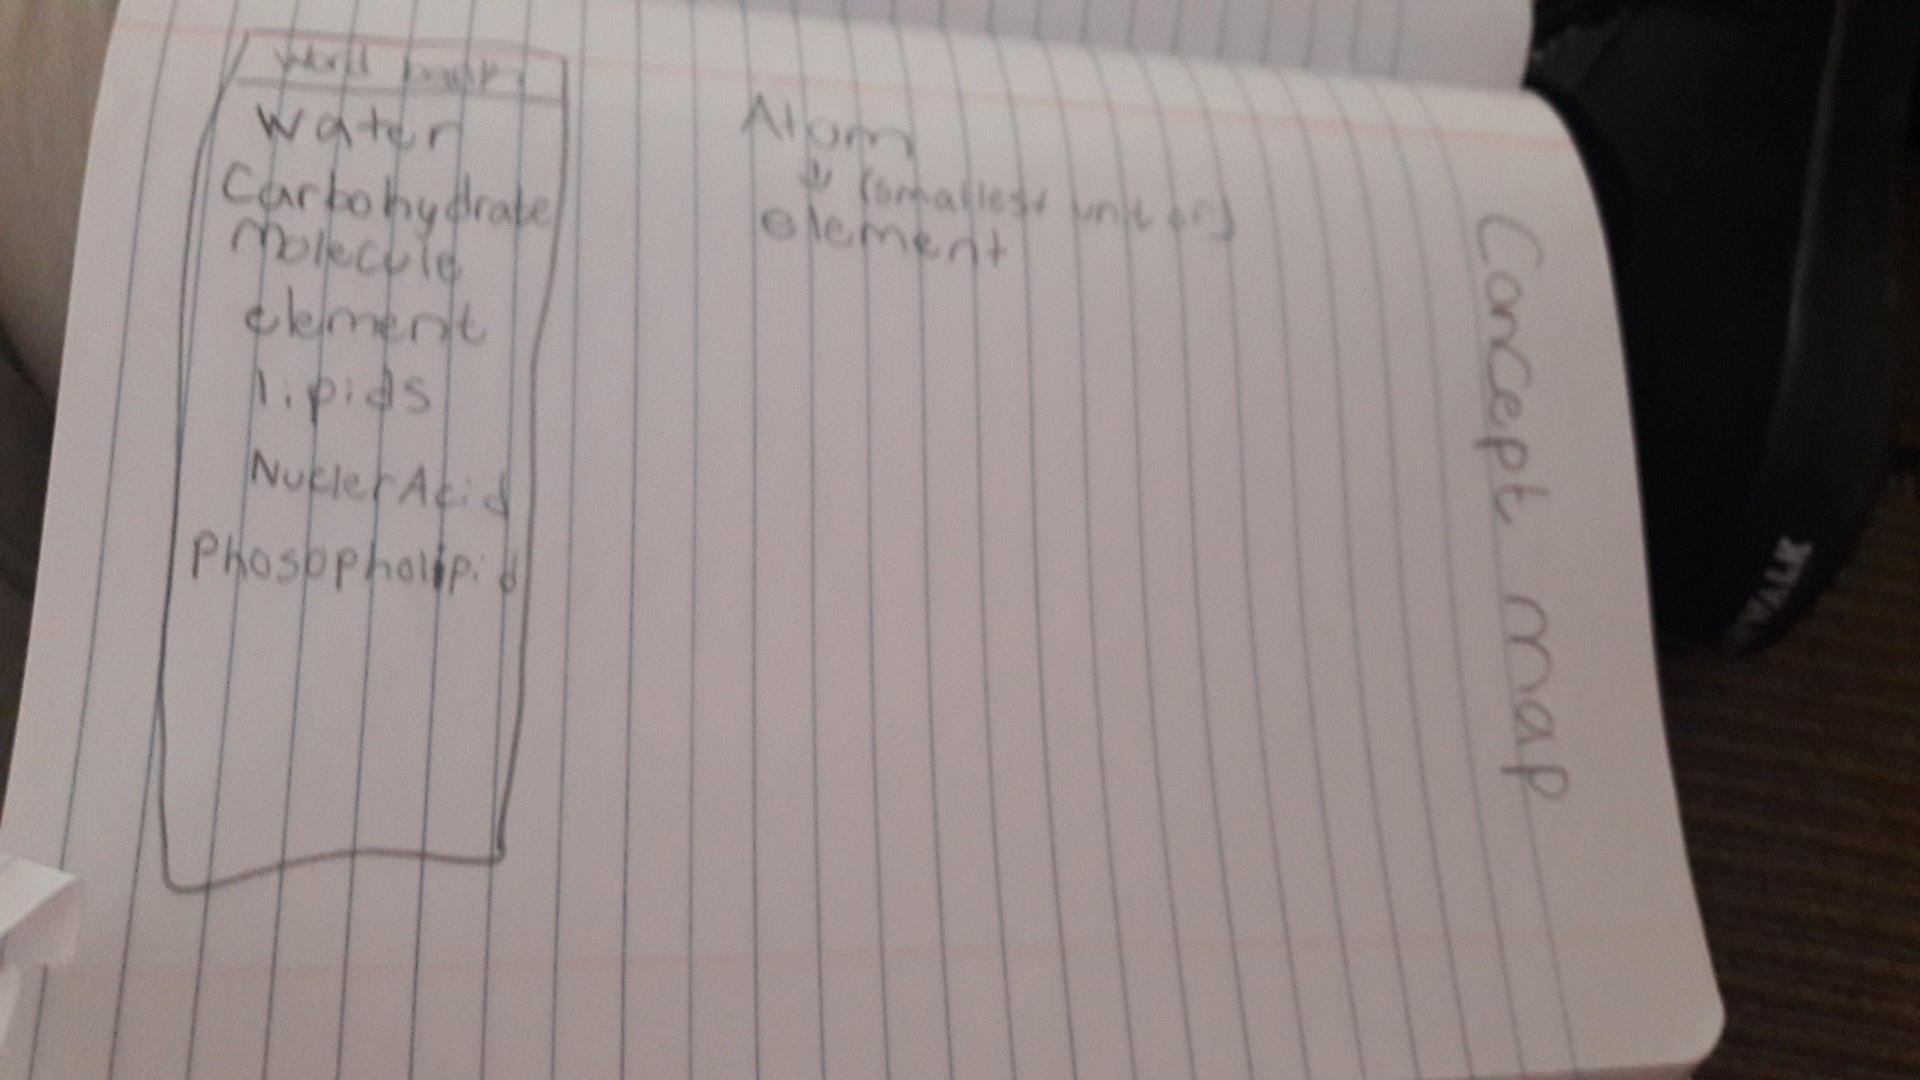 Word bank
Water
Carbohydrate
Molecule
element
lipids
Nucler Acid
Phosopholipid
Atom
↓ (smallest unit of)
element
Concept map
WALK